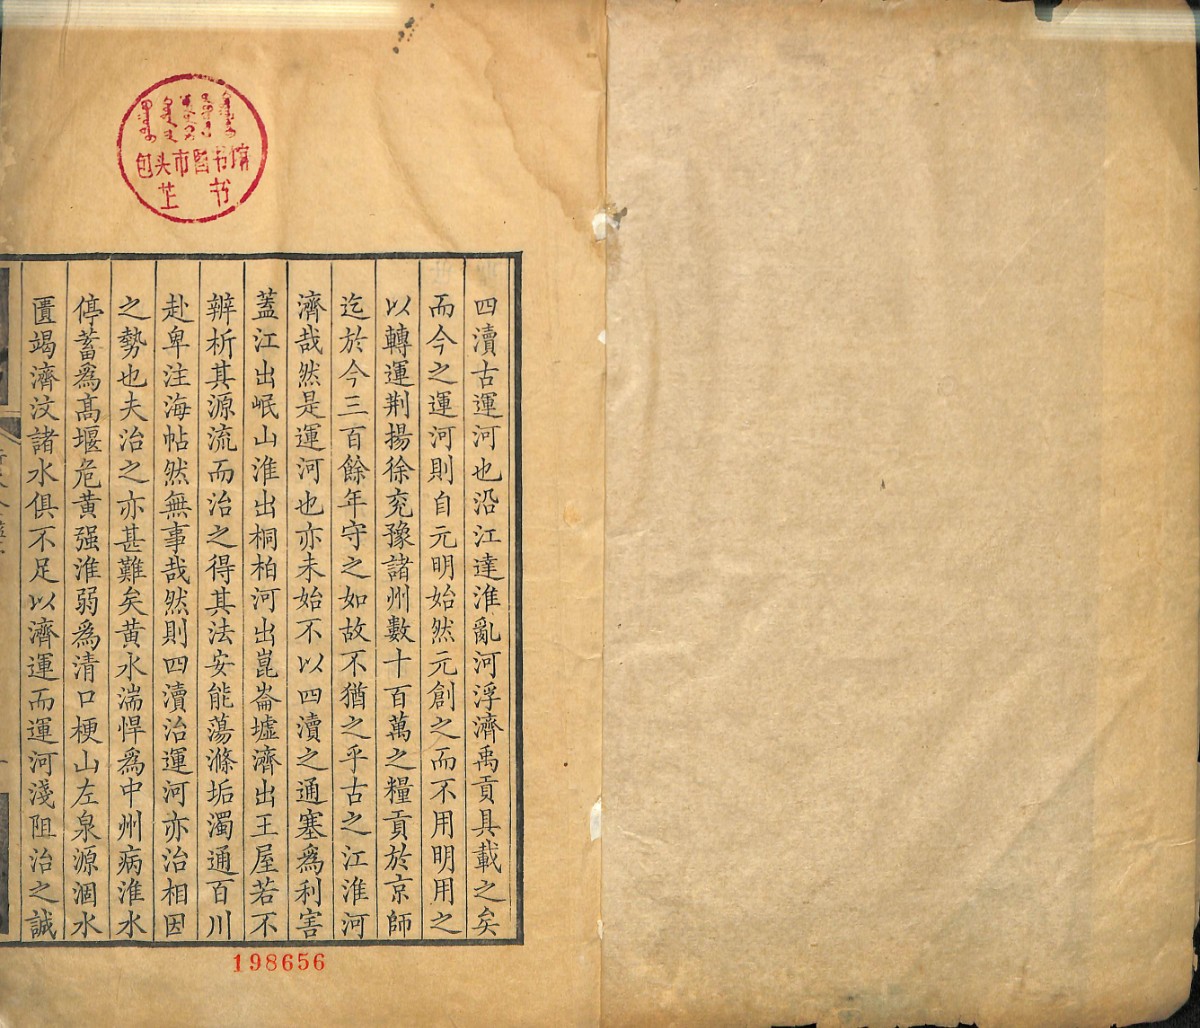 包头市图书馆
芷书
四瀆古運河也沿江達淮亂河浮濟禹貢具載之矣
而今之運河則自元明始然元創之而不用明用之
以轉運荆揚徐兖豫諸州數十百萬之糧貢於京師
迄於今三百餘年守之如故不猶之乎古之江淮河
濟哉然是運河也亦未始不以四瀆之通塞爲利害
蓋江出岷山淮出桐柏河出崑崙墟濟出王屋若不
辨析其源流而治之得其法安能蕩滌垢濁通百川
赴卑注海帖然無事哉然則四瀆治運河亦治相因
之勢也夫治之亦甚難矣黄水湍悍爲中州病淮水
停蓄爲高堰危黄强淮弱爲清口梗山左泉源涸水
匱竭濟汶諸水俱不足以濟運而運河淺阻治之誠
198656